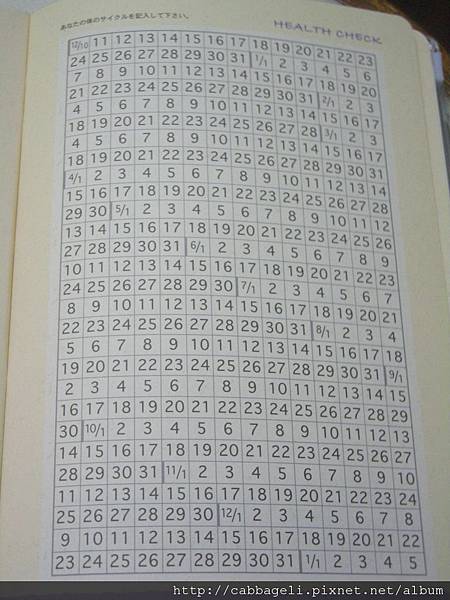 あなたの体のサイクルを記入して下さい。
HEALTH CHECK
12/10 11 12 13 14 15 16 17 18 19 20 21 22 23
24 25 26 27 28 29 30 31 1/1 2 3 4 5 6
7 8 9 10 11 12 13 14 15 16 17 18 19 20
21 22 23 24 25 26 27 28 29 30 31 2/1 2 3
4 5 6 7 8 9 10 11 12 13 14 15 16 17
18 19 20 21 22 23 24 25 26 27 28 3/1 2 3
4 5 6 7 8 9 10 11 12 13 14 15 16 17
18 19 20 21 22 23 24 25 26 27 28 29 30 31
4/1 2 3 4 5 6 7 8 9 10 11 12 13 14
15 16 17 18 19 20 21 22 23 24 25 26 27 28
29 30 5/1 2 3 4 5 6 7 8 9 10 11 12
13 14 15 16 17 18 19 20 21 22 23 24 25 26
27 28 29 30 31 6/1 2 3 4 5 6 7 8 9
10 11 12 13 14 15 16 17 18 19 20 21 22 23
24 25 26 27 28 29 30 7/1 2 3 4 5 6 7
8 9 10 11 12 13 14 15 16 17 18 19 20 21
22 23 24 25 26 27 28 29 30 31 8/1 2 3 4
5 6 7 8 9 10 11 12 13 14 15 16 17 18
19 20 21 22 23 24 25 26 27 28 29 30 31 9/1
2 3 4 5 6 7 8 9 10 11 12 13 14 15
16 17 18 19 20 21 22 23 24 25 26 27 28 29
30 10/1 2 3 4 5 6 7 8 9 10 11 12 13
14 15 16 17 18 19 20 21 22 23 24 25 26 27
28 29 30 31 11/1 2 3 4 5 6 7 8 9 10
11 12 13 14 15 16 17 18 19 20 21 22 23 24
25 26 27 28 29 30 12/1 2 3 4 5 6 7 8
9 10 11 12 13 14 15 16 17 18 19 20 21 22
23 24 25 26 27 28 29 30 31 1/1 2 3 4 5
http://cabbageli.pixnet.net/album